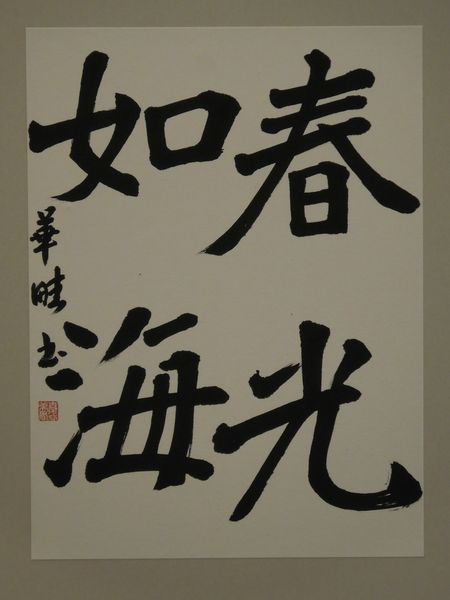 春光
如海
華書